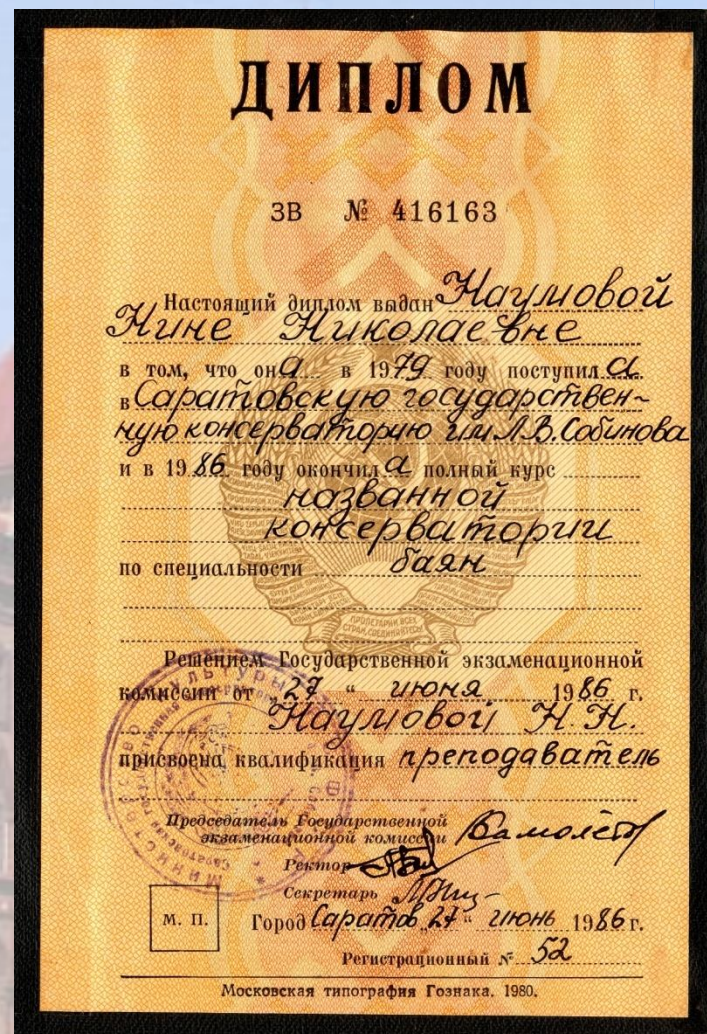 ДИПЛОМ
ЗВ № 416163
Настоящий диплом выдан Наумовой
Нине Николаевне
в том, что она в 1979 году поступила
в Саратовскую государствен-
ную консерваторию им. Л.В. Собинова
и в 1986 году окончила полный курс
названной
консерватории
по специальности баян
ПРОЛЕТАРИИ ВСЕХ
СТРАН, СОЕДИНЯЙТЕСЬ!
Решением Государственной экзаменационной
комиссии от „27“ июня 1986 г.
Наумовой Н. Н.
присвоена квалификация преподаватель
Председатель Государственной
экзаменационной комиссии
Ректор
Секретарь
М. П.
Город Саратов, 27 “ июнь 1986 г.
Регистрационный № 52
Московская типография Гознака. 1980.